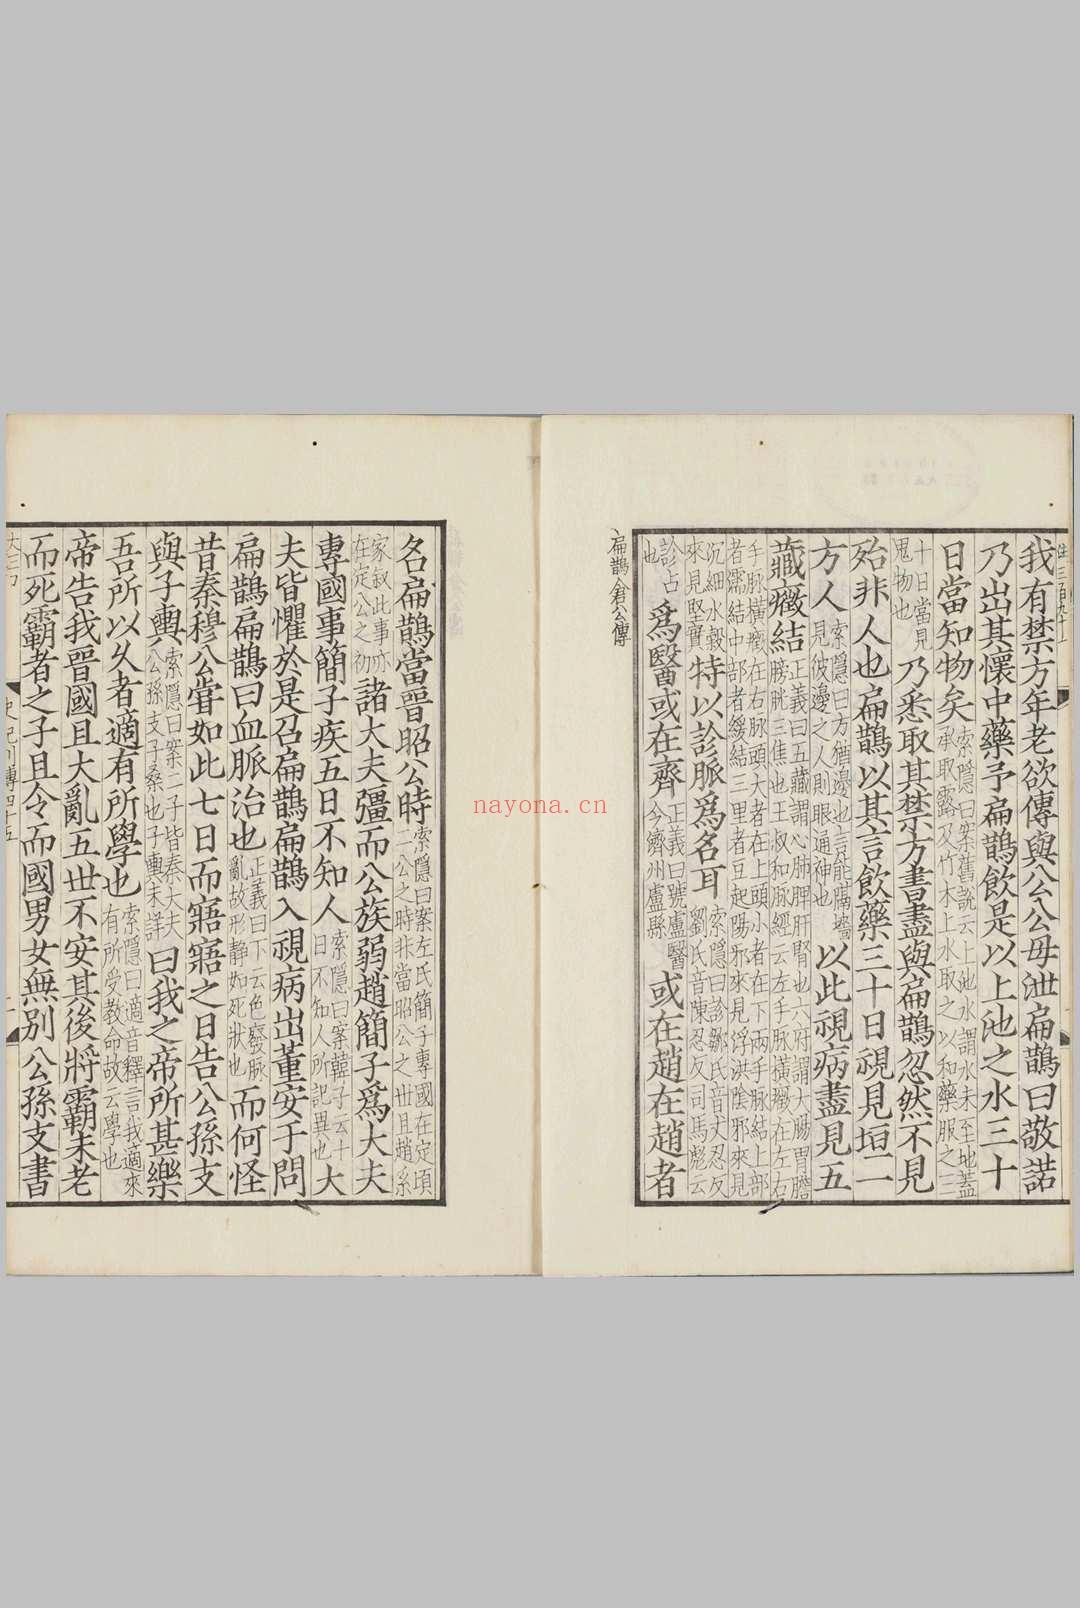 我有禁方年老欲傳與公公毋泄扁鵲曰敬諾
乃出其懷中藥予扁鵲飲是以上池之水三十
日當知物矣索隱曰案舊說云上池水謂水未至地蓋承取露及竹木上水取之以和藥服之三
十日當見鬼物也乃悉取其禁方書盡與扁鵲忽然不見
殆非人也扁鵲以其言飲藥三十日視見垣一
方人索隱曰方猶邊也言能隔墻見彼邊之人則眼通神也以此視病盡見五
藏癥結正義曰五藏謂心肺脾肝腎也六府謂大腸胃膽膀胱三焦也王叔和脉經云左手脉橫癥在左右
手脉橫癥在右脉頭大者在上頭小者在下兩手脉結上部者濡結中部者緩結三里者豆起陽邪來見浮洪陰邪來見
沉細水穀來見堅實特以診脈爲名耳索隱曰診鄒氏音丈忍反劉氏音陳忍反司馬彪云
診占也爲醫或在齊正義曰號盧醫今濟州盧縣或在趙在趙者
扁鵲倉公傳
名扁鵲當晉昭公時索隱曰案左氏簡子專國在定頃二公之時非當昭公之世且趙系
家叙此事亦在定公之初諸大夫彊而公族弱趙簡子爲大夫
專國事簡子疾五日不知人索隱曰案韓子云十日不知人所記異也大
夫皆懼於是召扁鵲扁鵲入視病出董安于問
扁鵲扁鵲曰血脈治也正義曰下云色廢脉亂故形靜如死狀也而何怪
昔秦穆公甞如此七日而寤寤之日告公孫支
與子輿索隱曰案二子皆秦大夫公孫支子桑也子輿未詳曰我之帝所甚樂
吾所以乆者適有所學也索隱曰適音釋言我適來有所受教命故云學也
帝告我晉國且大亂五世不安其後將霸未老
而死霸者之子且令而國男女無別公孫支書
史記列傳四十五
nayona.cn